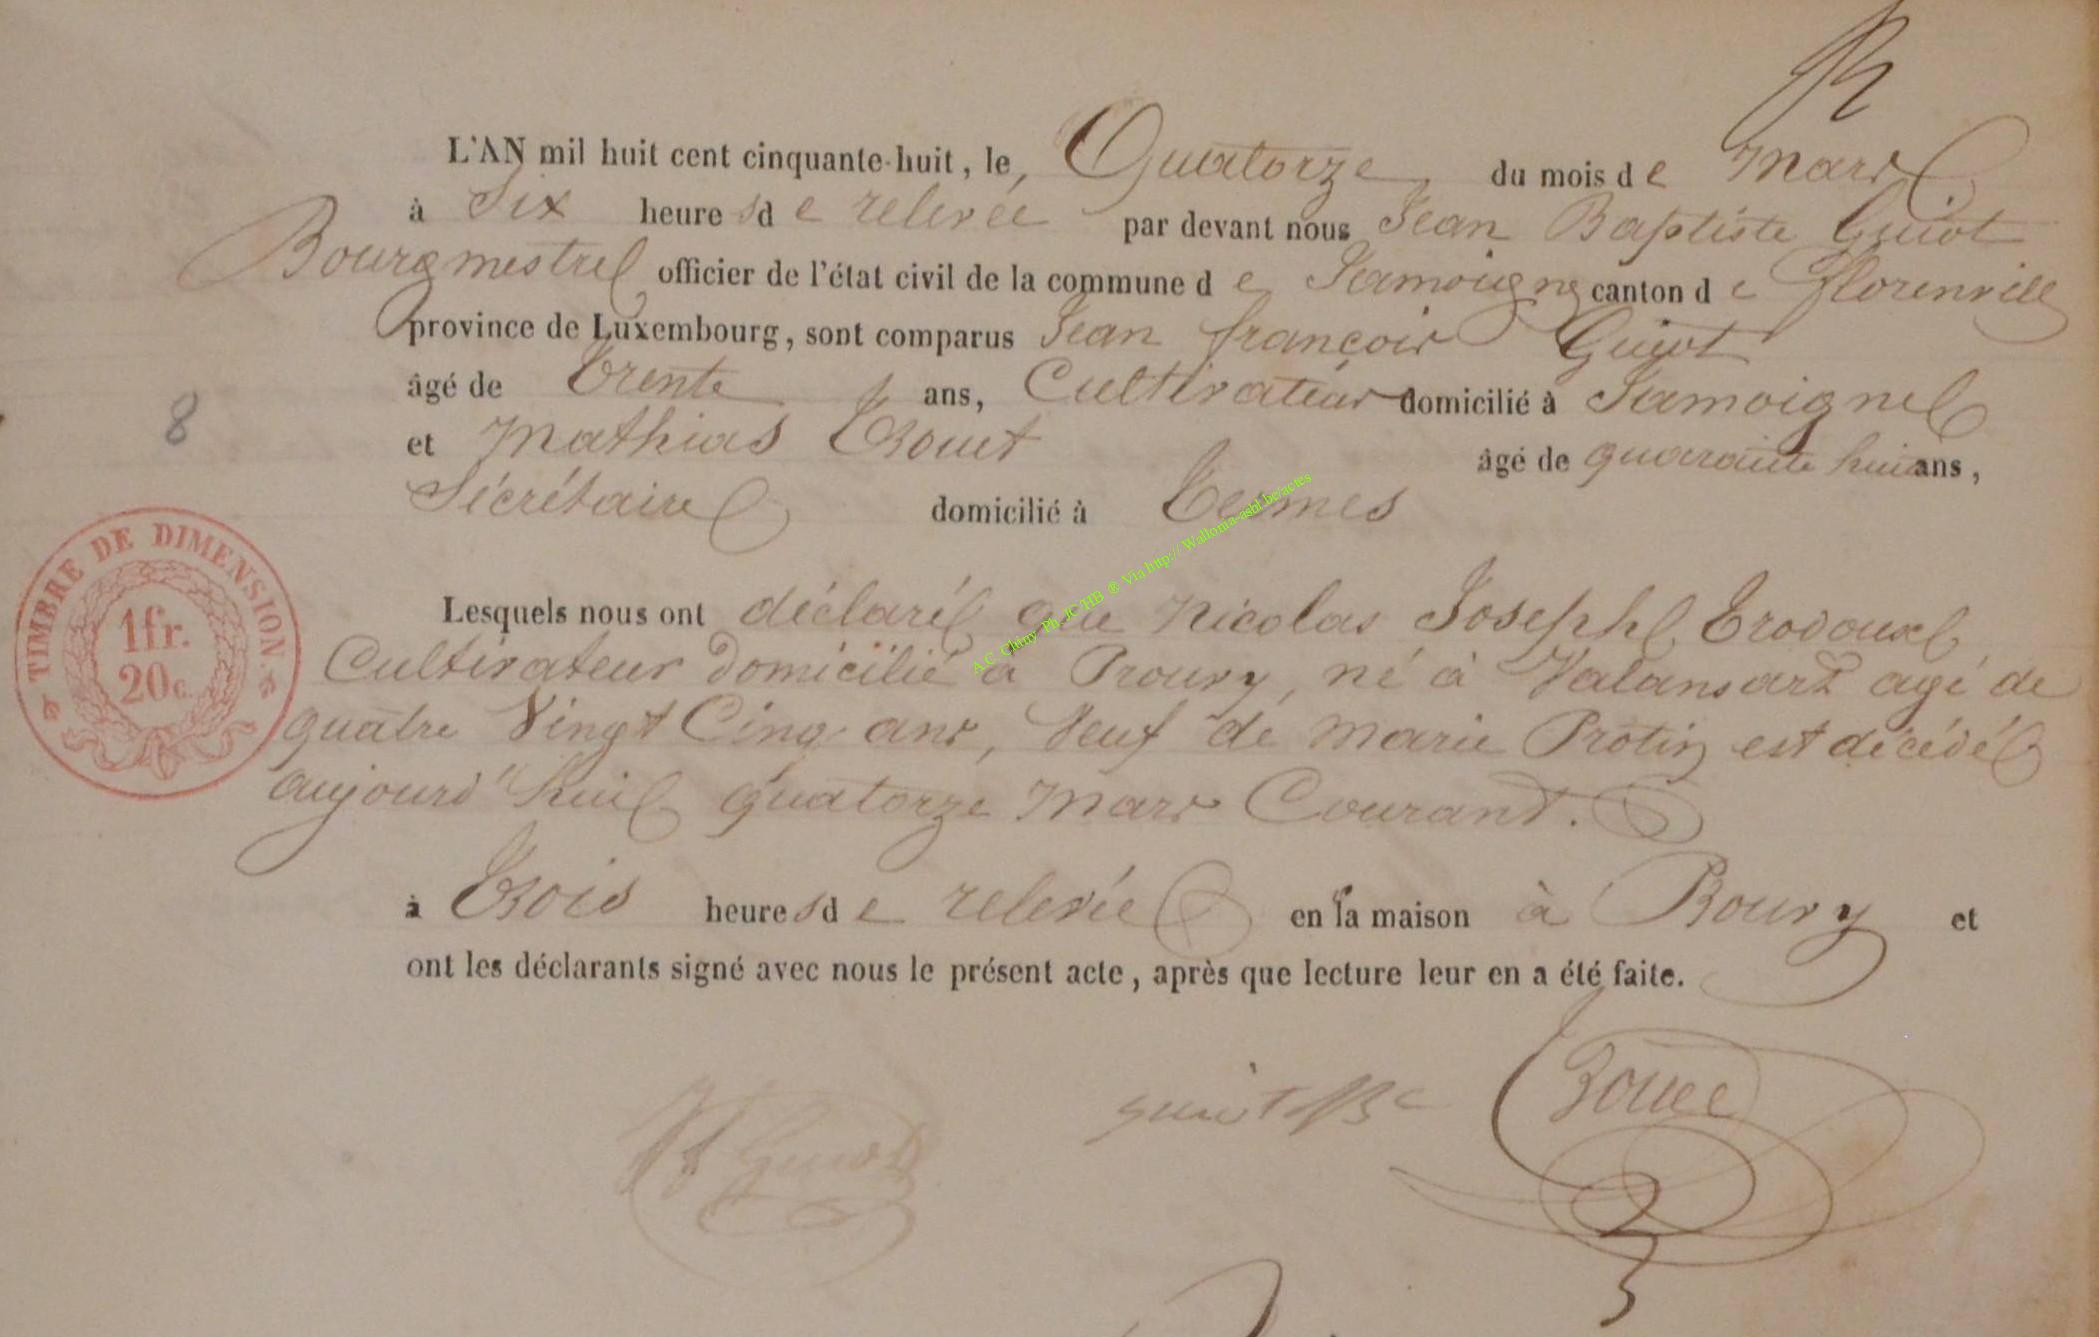 L'AN mil huit cent cinquante-huit, le Quatorze du mois de Mars
à Six heures de relevée par devant nous Jean Baptiste Guiot
Bourgmestre officier de l'état civil de la commune de Jamoigne canton de florenville
province de Luxembourg, sont comparus Jean françois Guiot
âgé de trente ans, Cultivateur domicilié à Jamoigne
et Mathias Rouet âgé de quarante huit ans,
Sécrétaire domicilié à Termes
8
TIMBRE DE DIMENSION.
1fr.
20c.
Lesquels nous ont déclaré que Nicolas Joseph Trodoux
Cultivateur domicilié à Prouvy, né à Valansart agé de
quatre Vingt Cinq ans, Veuf de Marie Protin est décédé
aujourd'hui quatorze Mars Courant.
à trois heures de relevée en la maison à Prouvy et
ont les déclarants signé avec nous le présent acte, après que lecture leur en a été faite.
Guiot
A C Chiny Ph_JC HB ® Via http:// Wallonia-asbl.be/actes